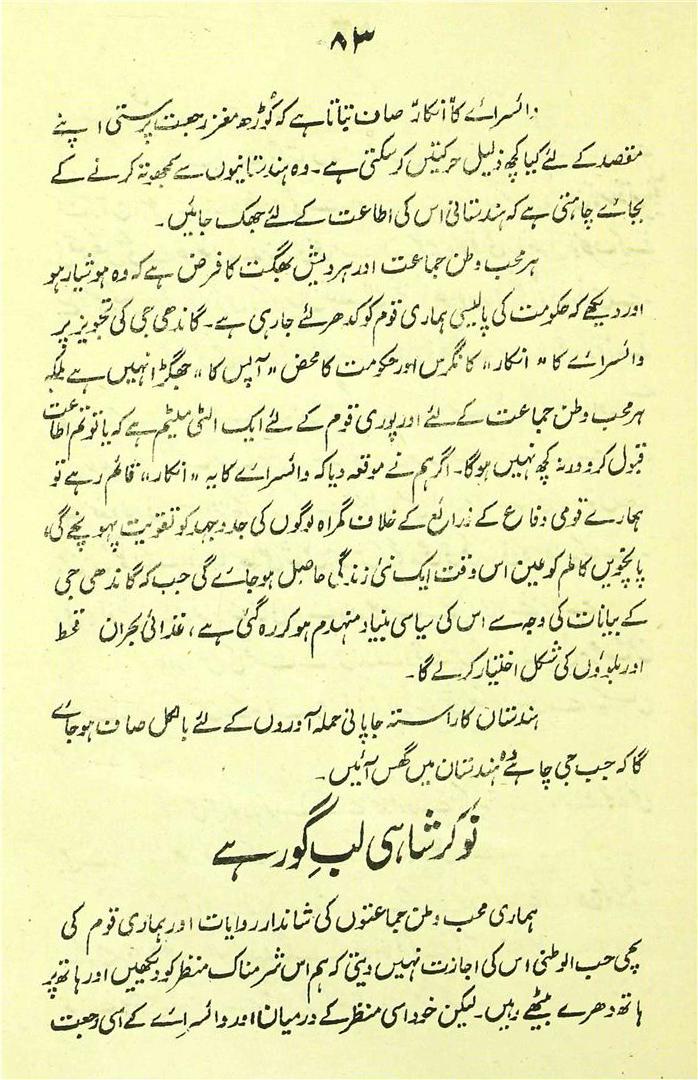 ۸۳
وائسرائے کا "انکار" صاف بتاتا ہے کہ کوڑھ مغز رجعت پرستی اپنے
مقصد کے لئے کیا کچھ ذلیل حرکتیں کر سکتی ہے۔ وہ ہندستانیوں سے سمجھوتہ کرنے کے
بجائے چاہتی ہے کہ ہندستانی اس کی اطاعت کے لئے جھک جائیں۔
ہر محب وطن جماعت اور ہر دیش بھگت کا فرض ہے کہ وہ ہوشیار ہو
اور دیکھے کہ حکومت کی پالیسی ہماری قوم کو کدھر لئے جا رہی ہے۔ گاندھی جی کی تجویز پر
وائسرائے کا "انکار" کانگرس اور حکومت کا محض "آپس کا" جھگڑا نہیں ہے بلکہ
ہر محب وطن جماعت کے لئے اور پوری قوم کے لئے ایک الٹی میٹم ہے کہ یا تو تم اطاعت
قبول کرو ورنہ کچھ نہیں ہوگا۔ اگر ہم نے موقعہ دیا کہ وائسرائے کا یہ "انکار" قائم رہے تو
ہمارے قومی دفاع کے ذرائع کے خلاف گمراہ لوگوں کی جدوجہد کو تقویت پہونچے گی،
پانچویں کالم کو عین اس وقت ایک نئی زندگی حاصل ہو جائے گی جب کہ گاندھی جی
کے بیانات کی وجہ سے اس کی سیاسی بنیاد منہدم ہو کر رہ گئی ہے، غذائی بحران قحط
اور بلوؤں کی شکل اختیار کر لے گا۔
ہندستان کا راستہ جاپانی حملہ آوروں کے لئے بالکل صاف ہو جائے
گا کہ جب جی چاہے وہ ہندستان میں گھس آئیں۔
نوکر شاہی لبِ گور ہے
ہماری محب وطن جماعتوں کی شاندار روایات اور ہماری قوم کی
سچی حب الوطنی اس کی اجازت نہیں دیتی کہ ہم اس شرمناک منظر کو دیکھیں اور ہاتھ پر
ہاتھ دھرے بیٹھے رہیں۔ لیکن خود اسی منظر کے درمیان اور وائسرائے کے اسی رجعت